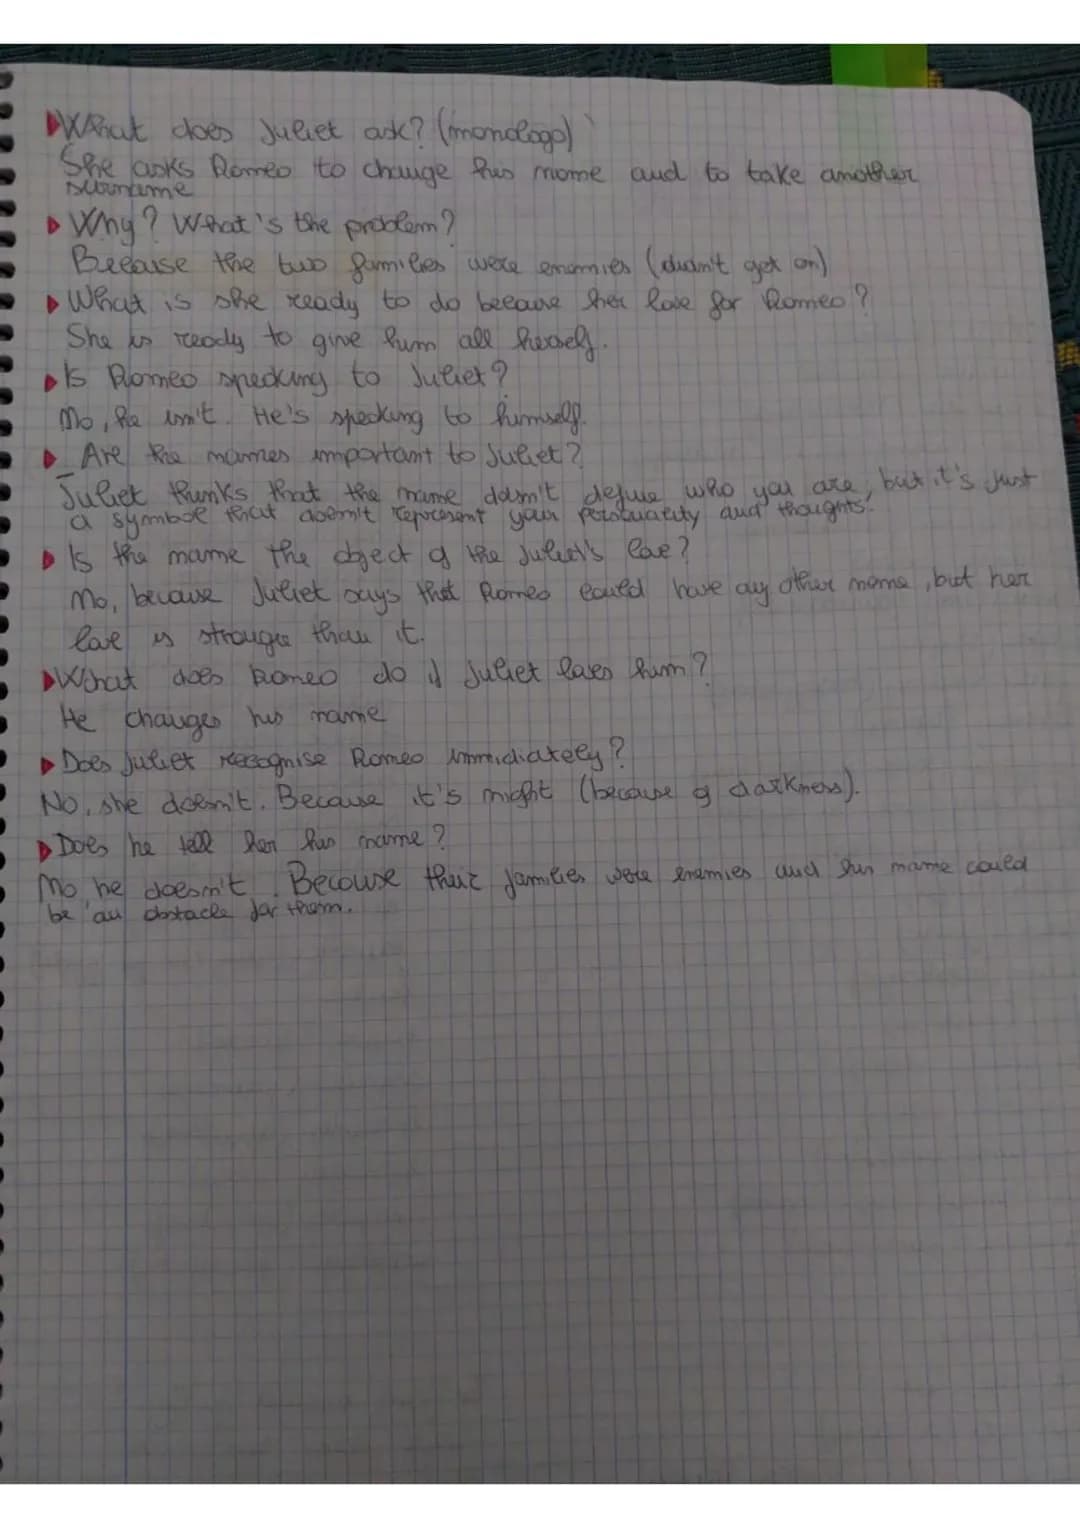 What does Juliet ask? (monologo)
She asks Romeo to change his name and to take another
surname
Why? What's the problem?
Because the two families were enemies (didn't get on)
What is she ready to do because her love for Romeo?
She is ready to give him all herself.
Is Romeo speaking to Juliet?
No, he isn't. He's speaking to himself.
Are the names important to Juliet?
Juliet thinks that the name doesn't define who you are, but it's just
a symbol that doesn't represent your personality and thoughts.
Is the name the object of the Juliet's love?
No, because Juliet says that Romeo could have ay other name, but her
love is stronger than it.
What does Romeo do if Juliet loves him?
He changes his name
Does Juliet recognise Romeo immidiately?
No, she doesn't. Because it's night (because of darkness).
Does he tell her his name?
No he doesn't. Becouse their families were enemies and his name could
be an obstacle for them.